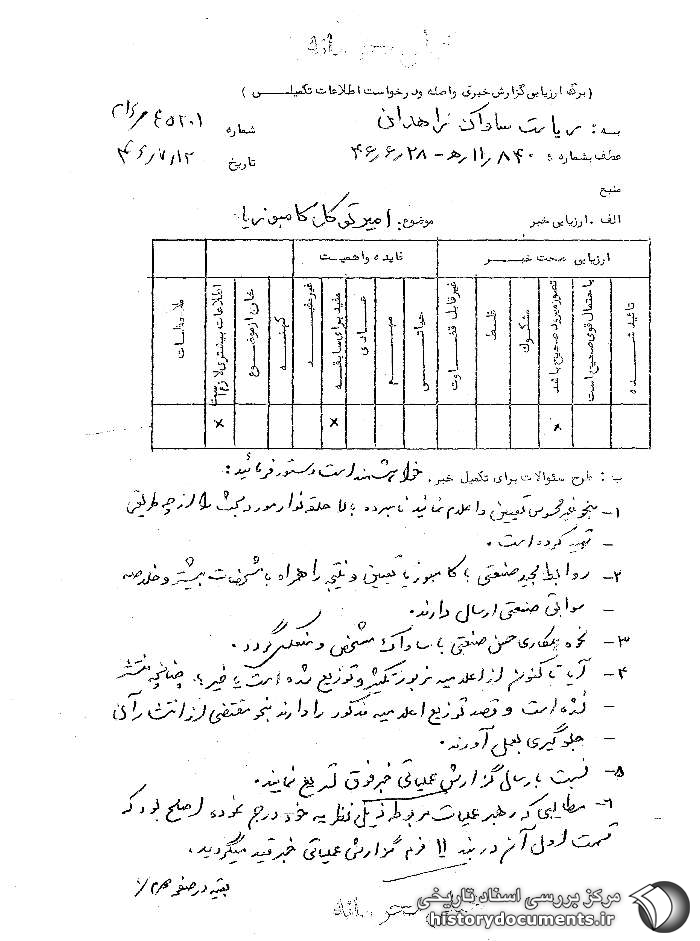 خیلی محرمانه
(برگ ارزیابی گزارش خبری واصله و درخواست اطلاعات تکمیلی)
به: ریاست ساواک زاهدان
شماره ۴۵۲۰۱
عطف بشماره ۱۱٫۸۴۰ /ه‍ - ۴۶٫۶٫۲۸
تاریخ ۴۶٫۷٫۱۲
منبع
الف. ارزیابی خبر
موضوع: امیر توکل کامبوزیا
ارزیابی صحت خبر
فایده و اهمیت
تائید شده
باحتمال قوی صحیح است
تصور میرود صحیح باشد
مشکوک
غلط
غیر قابل قضاوت
حیاتی
مهم
عادی
مفید برای سابقه
غیر مفید
کهنه
خارج از موضوع
اطلاعات بیشتری لازم است
ملاحظات
× × ×
ب: طرح سئوالات برای تکمیل خبر. خواهشمند است دستور فرمائید:
۱- بنحو غیر محسوس تعیین و اعلام نمایند نامبرده بالا حلقه نوار مورد بحث را از چه طریقی
- تهیه کرده است.
۲- روابط مجید صنعتی با کامبوزیا تعیین و نتیجه را همراه با مشخصات بیشتر و خلاصه
سوابق صنعتی ارسال دارند.
۳- نحوه همکاری حسن صنعتی با ساواک مشخص و منعکس گردد.
۴- آیا تاکنون از اعلامیه مزبور تکثیر و توزیع شده است یا خیر؟ چنانچه منتشر
- نشده است و قصد توزیع اعلامیه مذکور را دارند بنحو مقتضی از انتشار آن
- جلوگیری بعمل آورند.
۵- نسبت بارسال گزارش عملیاتی خبر فوق تسریع نمایند.
۶- مطالبی که رهبر عملیات مربوطه ذیل نظریه خود درج نموده اصلح بود که
قسمت اول آن در بند ۱۱ فرم گزارش عملیاتی خبر قید میگردید.
بقیه در صفحه ۲
خیلی محرمانه
مرکز بررسی اسناد تاریخی
historydocuments.ir